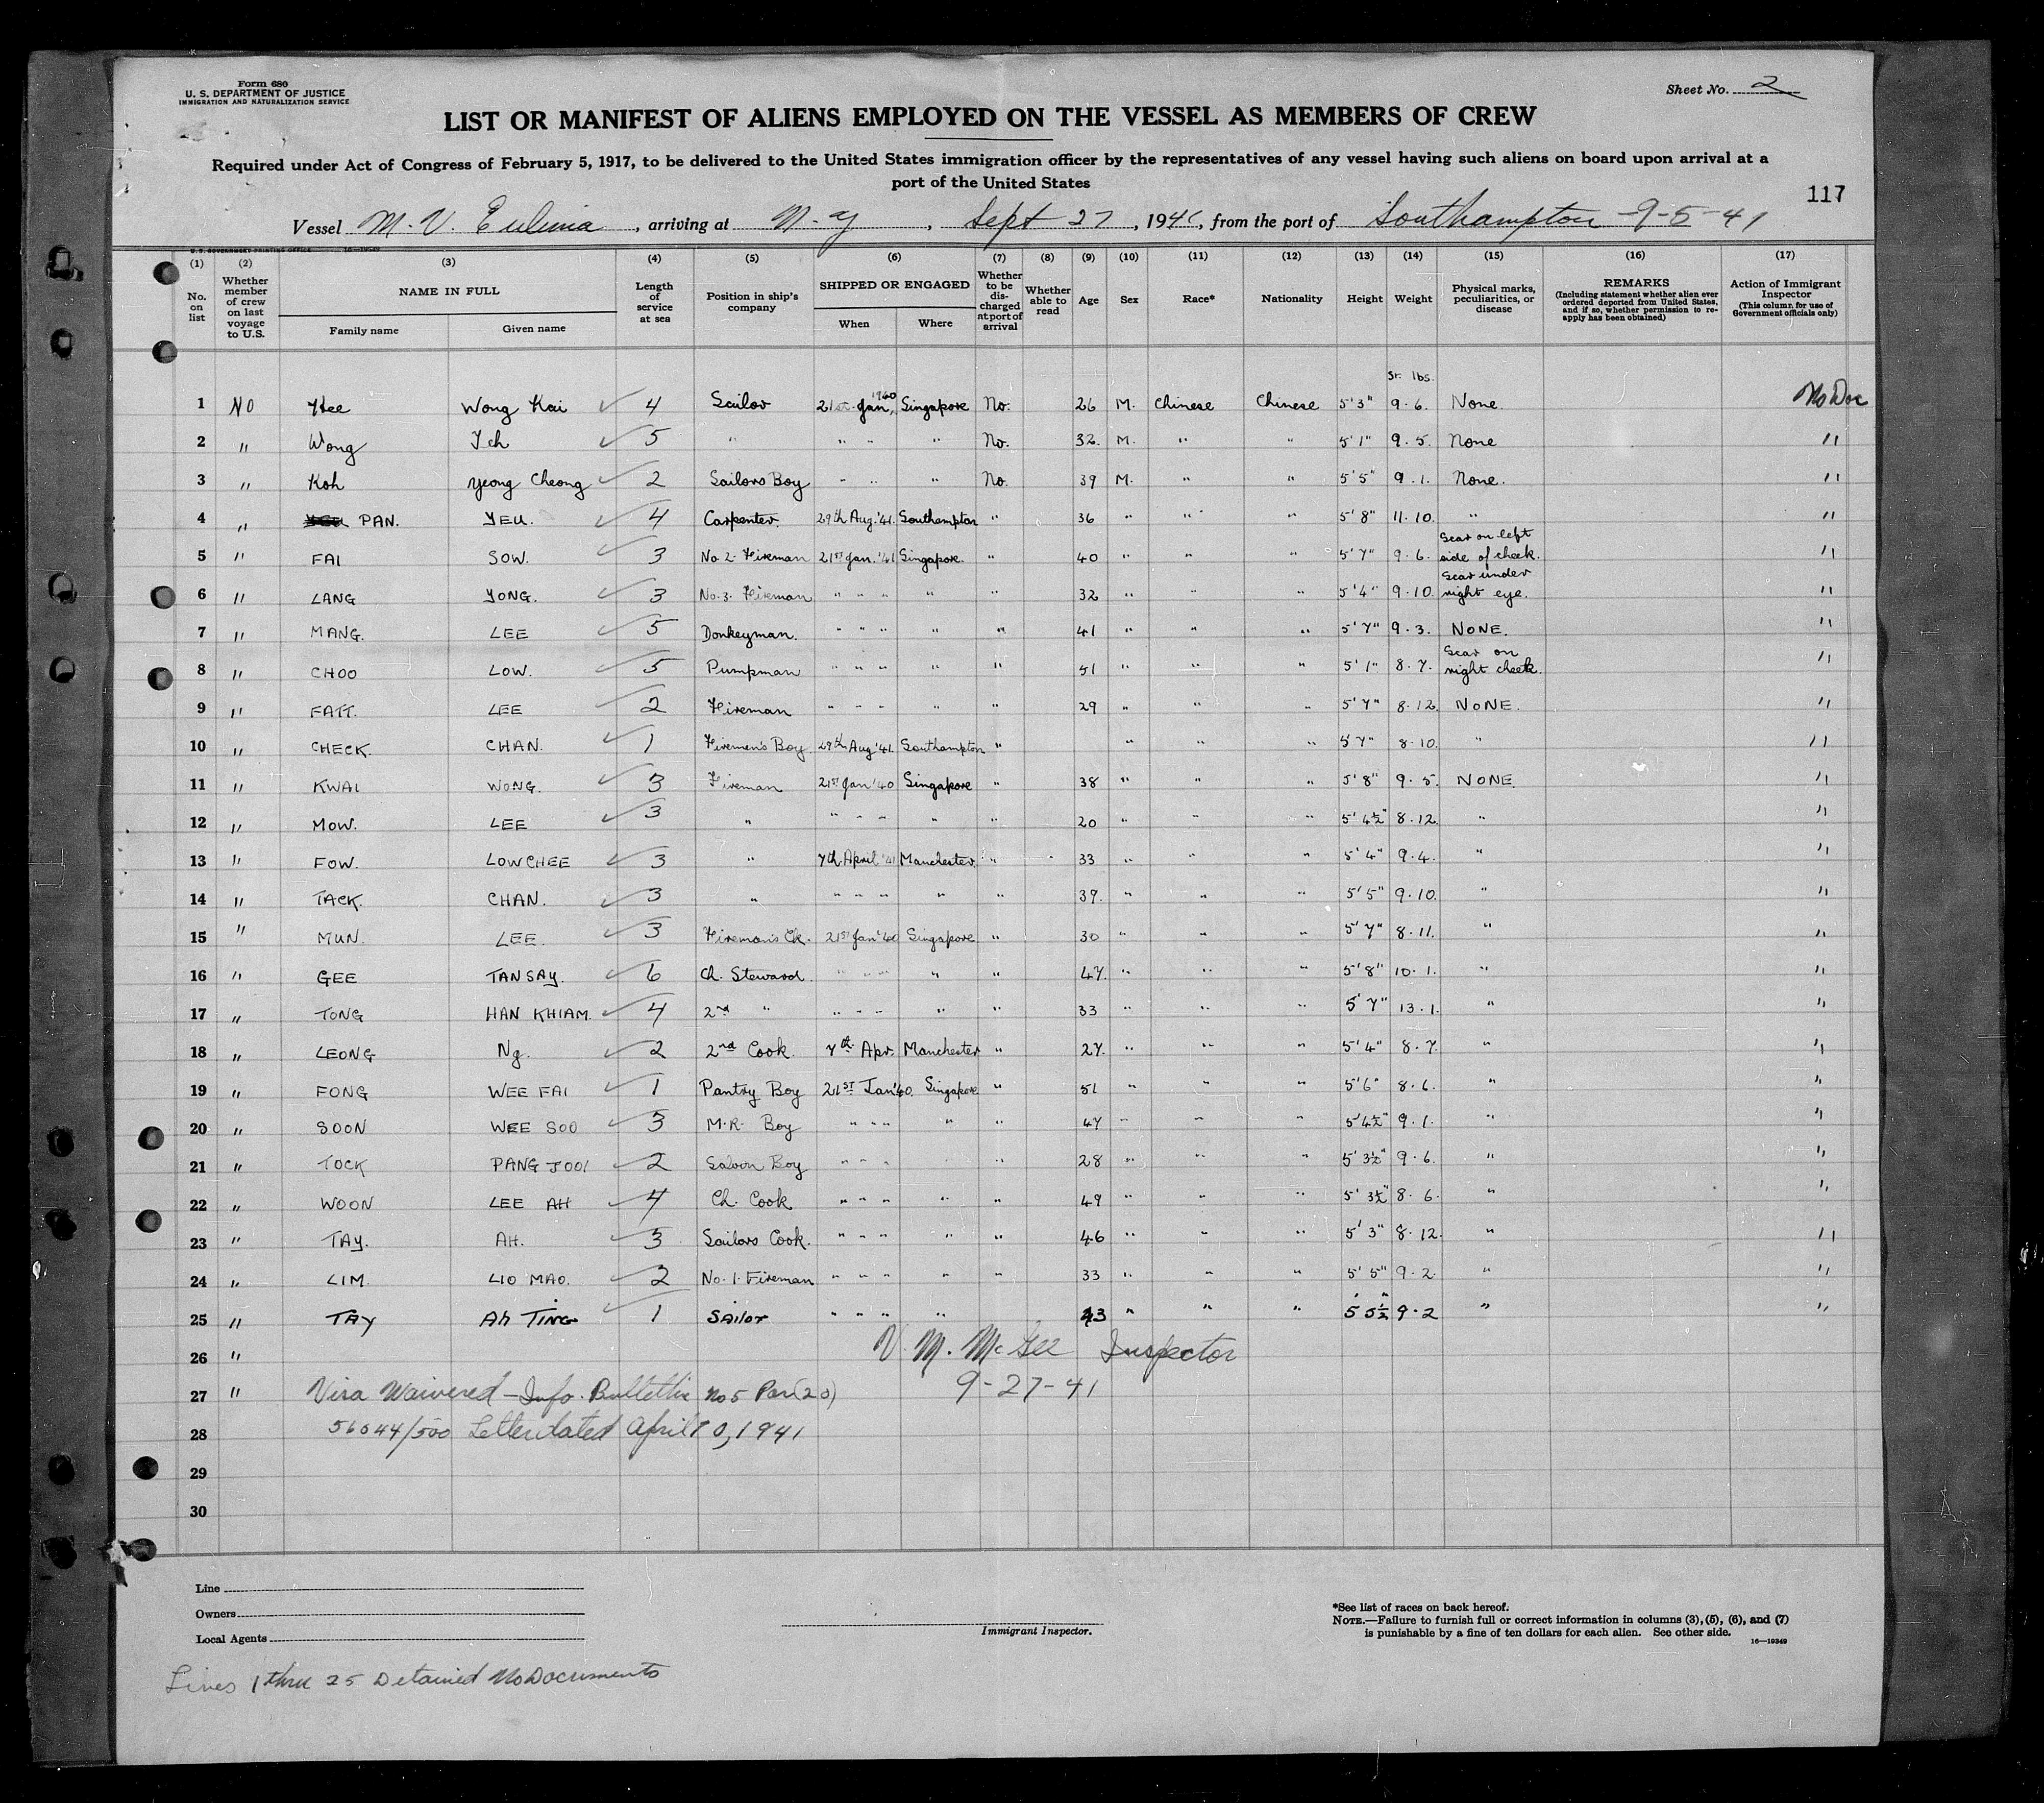 Form 680
U. S. DEPARTMENT OF JUSTICE
IMMIGRATION AND NATURALIZATION SERVICE
Sheet No. 2
LIST OR MANIFEST OF ALIENS EMPLOYED ON THE VESSEL AS MEMBERS OF CREW
Required under Act of Congress of February 5, 1917, to be delivered to the United States immigration officer by the representatives of any vessel having such aliens on board upon arrival at a
port of the United States
117
Vessel M. V. Eulima, arriving at N. Y, Sept 27, 1941, from the port of Southampton 9-5-41
U. S. GOVERNMENT PRINTING OFFICE 16—19349
(1) (2) (3) (4) (5) (6) (7) (8) (9) (10) (11) (12) (13) (14) (15) (16) (17)
No. on list
Whether member of crew on last voyage to U.S.
NAME IN FULL
Family name Given name
Length of service at sea
Position in ship's company
SHIPPED OR ENGAGED
When Where
Whether to be discharged at port of arrival
Whether able to read
Age
Sex
Race*
Nationality
Height
Weight
Physical marks, peculiarities, or disease
REMARKS
(Including statement whether alien ever ordered deported from United States, and if so, whether permission to reapply has been obtained)
Action of Immigrant Inspector
(This column for use of Government officials only)
St. lbs.
1 NO Kee Wong Kai ✓ 4 Sailor 21st Jan, 1940 Singapore No. 26 M. Chinese Chinese 5'3" 9.6. None. No Doc
2 " Wong Ich ✓ 5 " " " " No. 32. M. " " 5'1" 9.5. None "
3 " Koh Yeong Cheong ✓ 2 Sailors Boy " " " No. 39 M. " " 5'5" 9.1. None. "
4 " PAN. YEU. ✓ 4 Carpenter. 29th Aug.'41. Southampton " 36 " " " 5'8" 11.10. " "
5 " FAI SOW. ✓ 3 No. 2. Fireman 21st Jan.'41 Singapore. " 40 " " " 5'7" 9.6. Scar on left side of cheek. "
6 " LANG YONG. ✓ 3 No. 3. Fireman " " " " " 32 " " " 5'4" 9.10. Scar under right eye. "
7 " MANG. LEE ✓ 5 Donkeyman. " " " " " 41 " " " 5'7" 9.3. NONE. "
8 " CHOO LOW. ✓ 5 Pumpman " " " " " 51 " " " 5'1" 8.7. Scar on right cheek. "
9 " FATT. LEE ✓ 2 Fireman " " " " " 29 " " " 5'7" 8.12. NONE. "
10 " CHECK. CHAN. ✓ 1 Firemen's Boy 29th Aug'41. Southampton " " " " 5'7" 8.10. " "
11 " KWAI WONG. ✓ 3 Fireman 21st Jan'40 Singapore " 38 " " " 5'8" 9.5. NONE. "
12 " MOW. LEE ✓ 3 " " " " " " 20 " " " 5'4½" 8.12. " "
13 " FOW. LOW CHEE ✓ 3 " 7th April '41 Manchester. " 33 " " " 5'4" 9.4. " "
14 " TACK. CHAN. ✓ 3 " " " " " " 39. " " " 5'5" 9.10. " "
15 " MUN. LEE. ✓ 3 Fireman's Ck. 21st Jan'40 Singapore " 30 " " " 5'7" 8.11. " "
16 " GEE TAN SAY. ✓ 6 Ch. Steward. " " " " " 47. " " " 5'8" 10.1. " "
17 " TONG HAN KHIAM. ✓ 4 2nd " " " " " " 33 " " " 5'7" 13.1. " "
18 " LEONG Ng. ✓ 2 2nd Cook. 7th Apr. Manchester " 27. " " " 5'4" 8.7. " "
19 " FONG WEE FAI ✓ 1 Pantry Boy 21st Jan'40. Singapore " 51 " " " 5'6" 8.6. " "
20 " SOON WEE SOO ✓ 3 M.R. Boy " " " " " 47 " " " 5'4½" 9.1. " "
21 " TOCK PANG JOOI ✓ 2 Saloon Boy " " " " " 28 " " " 5'3½" 9.6. " "
22 " WOON LEE AH ✓ 4 Ch. Cook " " " " " 49 " " " 5'3½" 8.6. " "
23 " TAY. AH. ✓ 3 Sailors Cook. " " " " " 46 " " " 5'3" 8.12. " "
24 " LIM. LIO MAO. ✓ 2 No. 1. Fireman " " " " " 33 " " " 5'5" 9.2. " "
25 " TAY Ah TING ✓ 1 Sailor " " " " 43 " " " 5'5½" 9.2 " "
26 " V. M. McGee Inspector
27 " Visa Waivered - Info. Bulletin No 5 Par(20) 9-27-41
28 56044/500 Letter dated April 0, 1941
29
30
Line
Owners
Local Agents
Immigrant Inspector.
*See list of races on back hereof.
NOTE.—Failure to furnish full or correct information in columns (3), (5), (6), and (7)
is punishable by a fine of ten dollars for each alien. See other side.
16—19349
Lines 1 thru 25 Detained No Documents